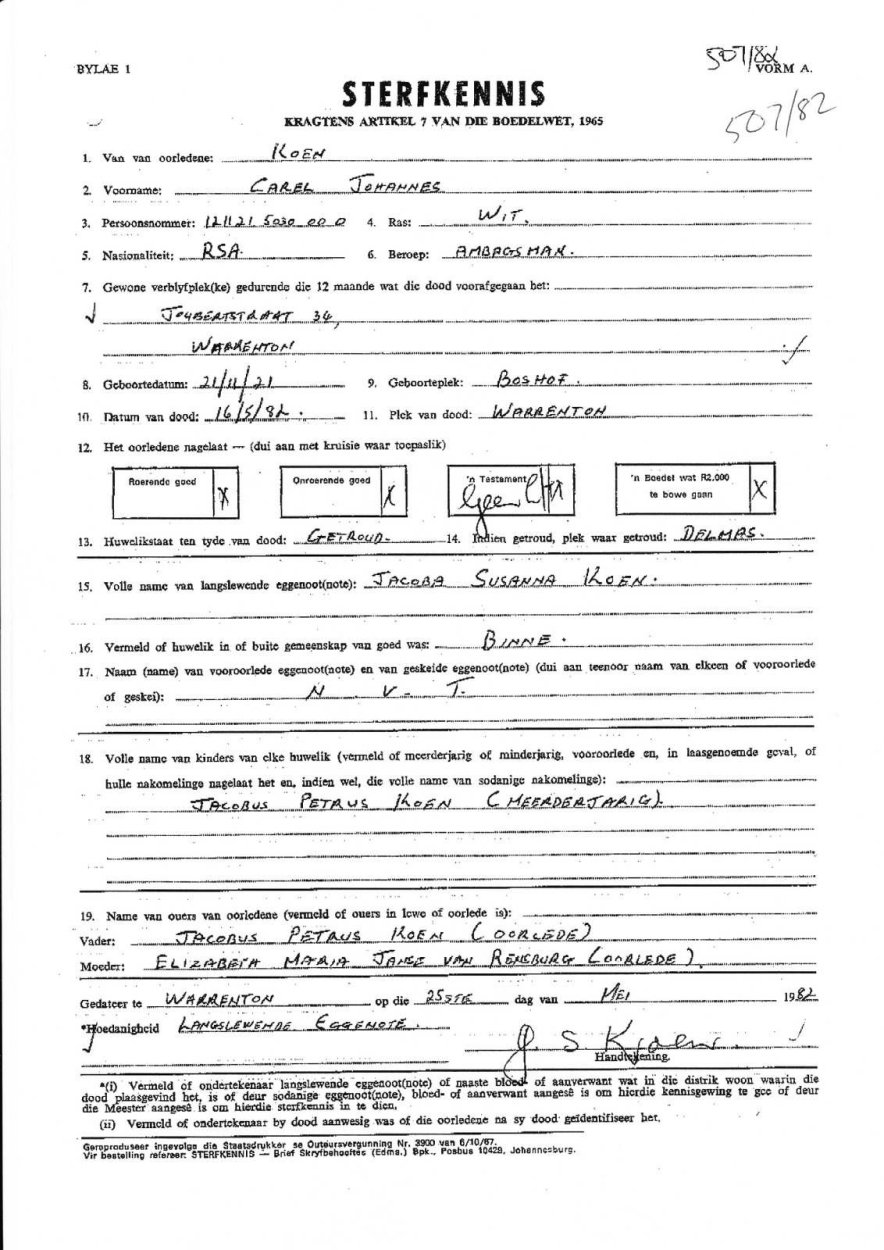 BYLAE 1
507/82
VORM A.
STERFKENNIS
KRAGTENS ARTIKEL 7 VAN DIE BOEDELWET, 1965
507/82
1. Van van oorledene: KOEN
2. Voorname: CAREL JOHANNES
3. Persoonsnommer: 4. Ras: WIT.
5. Nasionaliteit: RSA. 6. Beroep: AMBAGSMAN.
7. Gewone verblyfplek(ke) gedurende die 12 maande wat die dood voorafgegaan het:
JOUBERTSTRAAT 34,
WARRENTON
8. Geboortedatum: 21/11/21 9. Geboorteplek: BOSHOF.
10. Datum van dood: 16/5/82. 11. Plek van dood: WARRENTON
12. Het oorledene nagelaat — (dui aan met kruisie waar toepaslik)
Roerende goed X Onroerende goed X 'n Testament Geen 'n Boedel wat R2.000 X
te bowe gaan
13. Huwelikstaat ten tyde van dood: GETROUD. 14. Indien getroud, plek waar getroud: DELMAS.
15. Volle name van langslewende eggenoot(note): JACOBA SUSANNA KOEN.
16. Vermeld of huwelik in of buite gemeenskap van goed was: BINNE.
17. Naam (name) van vooroorlede eggenoot(note) en van geskeide eggenoot(note) (dui aan teenoor naam van elkeen of vooroorlede
of geskei): N V. T.
18. Volle name van kinders van elke huwelik (vermeld of meerderjarig of minderjarig, vooroorlede en, in laasgenoemde geval, of
hulle nakomelinge nagelaat het en, indien wel, die volle name van sodanige nakomelinge):
JACOBUS PETRUS KOEN (MEERDERJARIG).
19. Name van ouers van oorledene (vermeld of ouers in lewe of oorlede is):
Vader: JACOBUS PETRUS KOEN (OORLEDE)
Moeder: ELIZABETH MARIA JANSE VAN RENSBURG (OORLEDE).
Gedateer te WARRENTON op die 25STE dag van MEI 1982
*Hoedanigheid LANGSLEWENDE EGGENOTE. J. S. Koen.
Handtekening.
*(i) Vermeld of ondertekenaar langslewende eggenoot(note) of naaste bloed- of aanverwant wat in die distrik woon waarin die
dood plaasgevind het, is of deur sodanige eggenoot(note), bloed- of aanverwant aangesê is om hierdie kennisgewing te gee of deur
die Meester aangesê is om hierdie sterfkennis in te dien.
(ii) Vermeld of ondertekenaar by dood aanwesig was of die oorledene na sy dood geïdentifiseer het.
Gereproduseer ingevolge die Staatsdrukker se Outeursvergunning Nr. 3900 van 6/10/67.
Vir bestelling refereer: STERFKENNIS — Brief Skryfbehoeftes (Edms.) Bpk., Posbus 10429, Johannesburg.